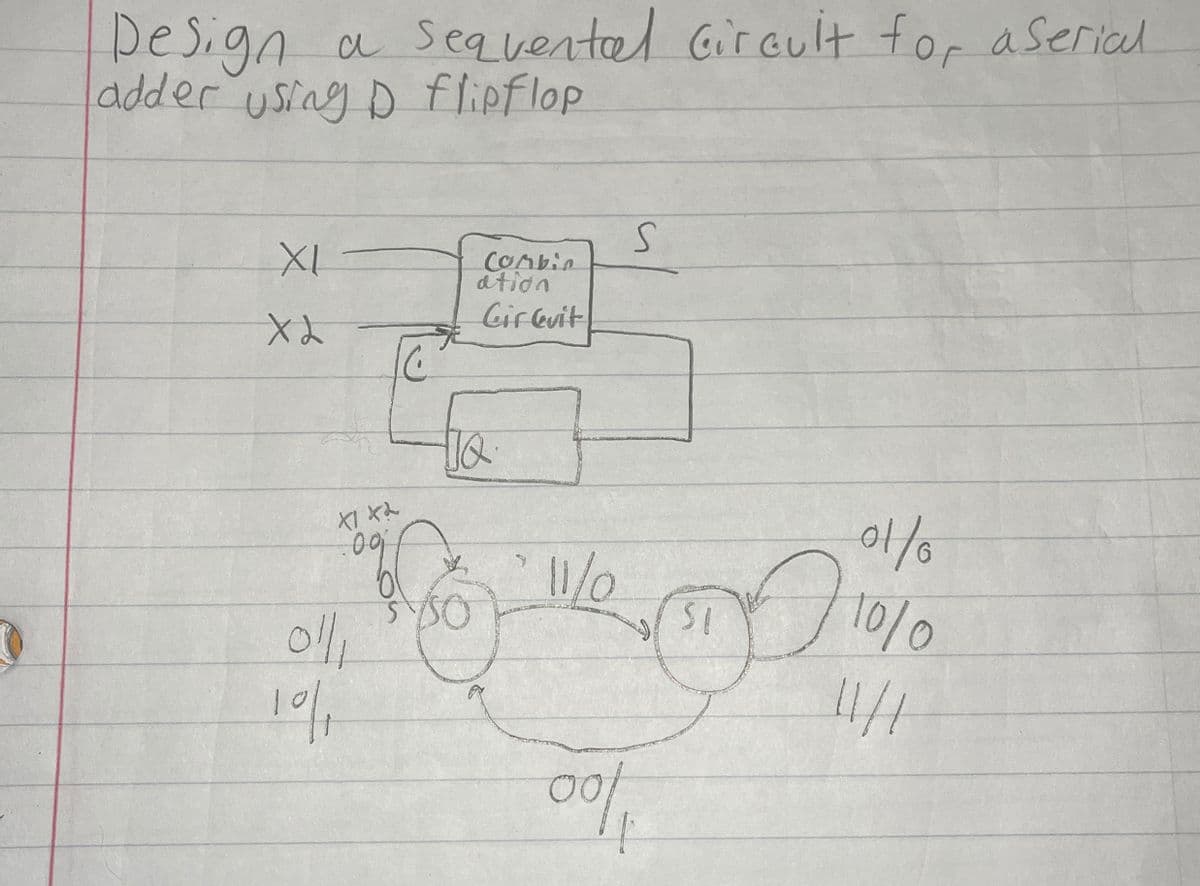 Design a sequental Circuit for a Serial
adder using D flipflop
X1
Combin
ation
Circuit
S
X2
C
Q
X1 X2
00/0
S
S0
11/0
S1
01/0
10/0
11/1
01/1
10/1
00/1